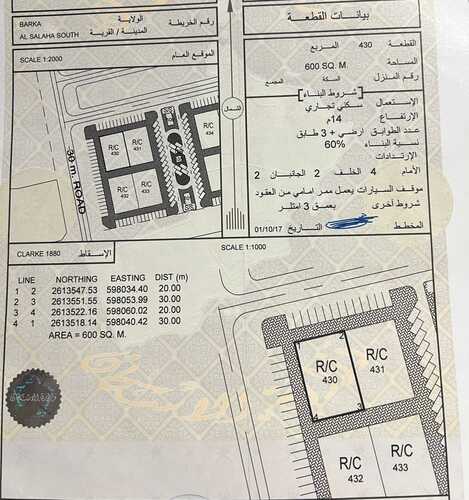 بيانات القطعة
القطعة 430 المربع
المساحة 600 SQ. M.
رقم المنزل السكة المجمع
شروط البناء
الإستعمال سكني تجاري
الإرتفاع 14م
عدد الطوابق ارضي + 3 طابق
نسبة البناء 60%
الإرتدادات
الأمام 4 الخلف 2 الجانبان 2
موقف السيارات يعمل ممر امامي من العقود
شروط أخرى بعمق 3 امتار
المخطط التاريخ 01/10/17
BARKA الولاية رقم الخريطة
AL SALAHA SOUTH المدينة / القرية
SCALE 1:2000 الموقع العام
الشمال
30 m. ROAD
R/C 432
R/C 431
R/C 432
R/C 433
R/C
R/C
CLARKE 1880 الإسقاط
SCALE 1:1000
LINE NORTHING EASTING DIST (m)
1 2 2613547.53 598034.40 20.00
2 3 2613551.55 598053.99 30.00
3 4 2613522.16 598060.02 20.00
4 1 2613518.14 598040.42 30.00
AREA = 600 SQ. M.
2
R/C 430
R/C 431
4 3
R/C 432
R/C 433